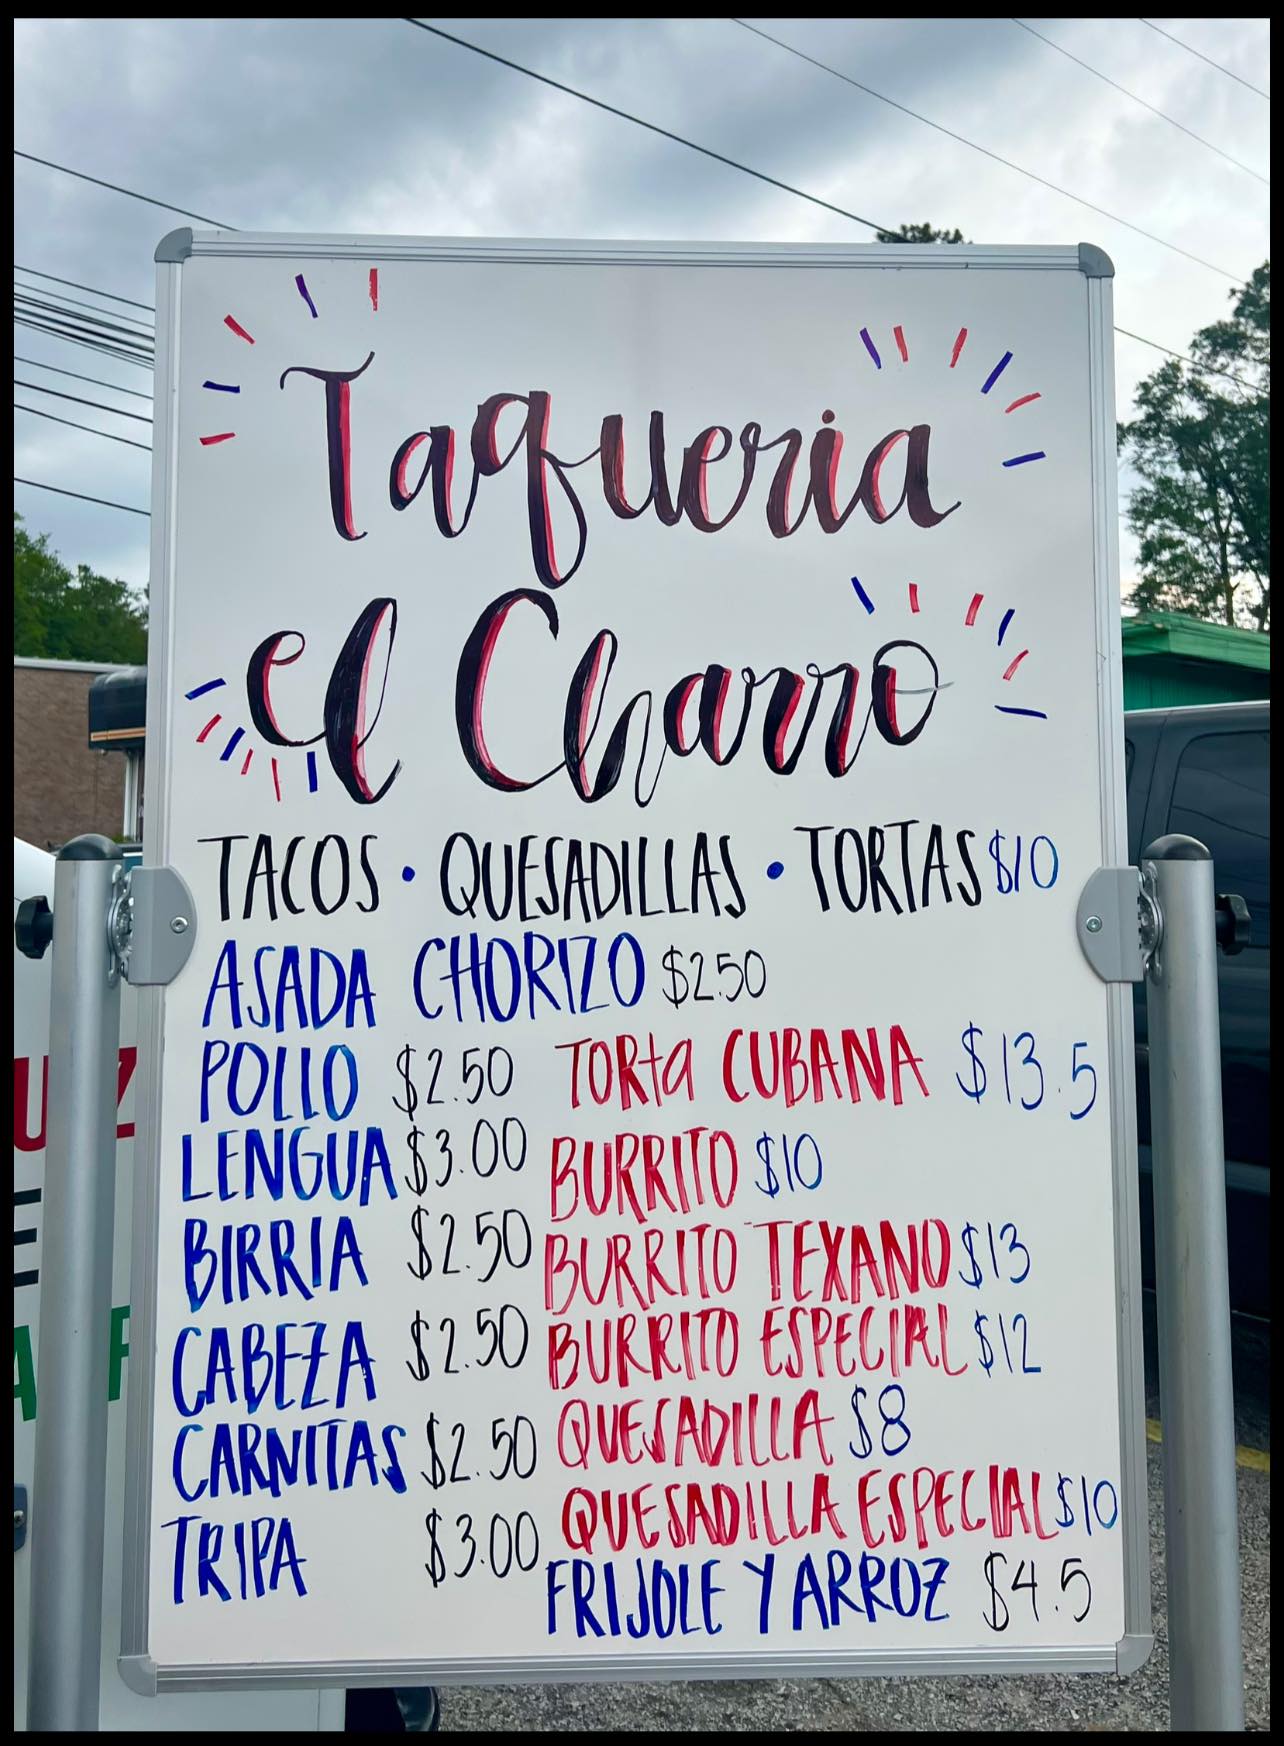 Taqueria
el Charro
TACOS • QUESADILLAS • TORTAS $10
ASADA CHORIZO $2.50
POLLO $2.50
LENGUA $3.00
BIRRIA $2.50
CABEZA $2.50
CARNITAS $2.50
TRIPA $3.00
TORta CUBANA $13.5
BURRITO $10
BURRITO TEXANO $13
BURRITO ESPECIAL $12
QUESADILLA $8
QUESADILLA ESPECIAL $10
FRIJOLE Y ARROZ $4.5